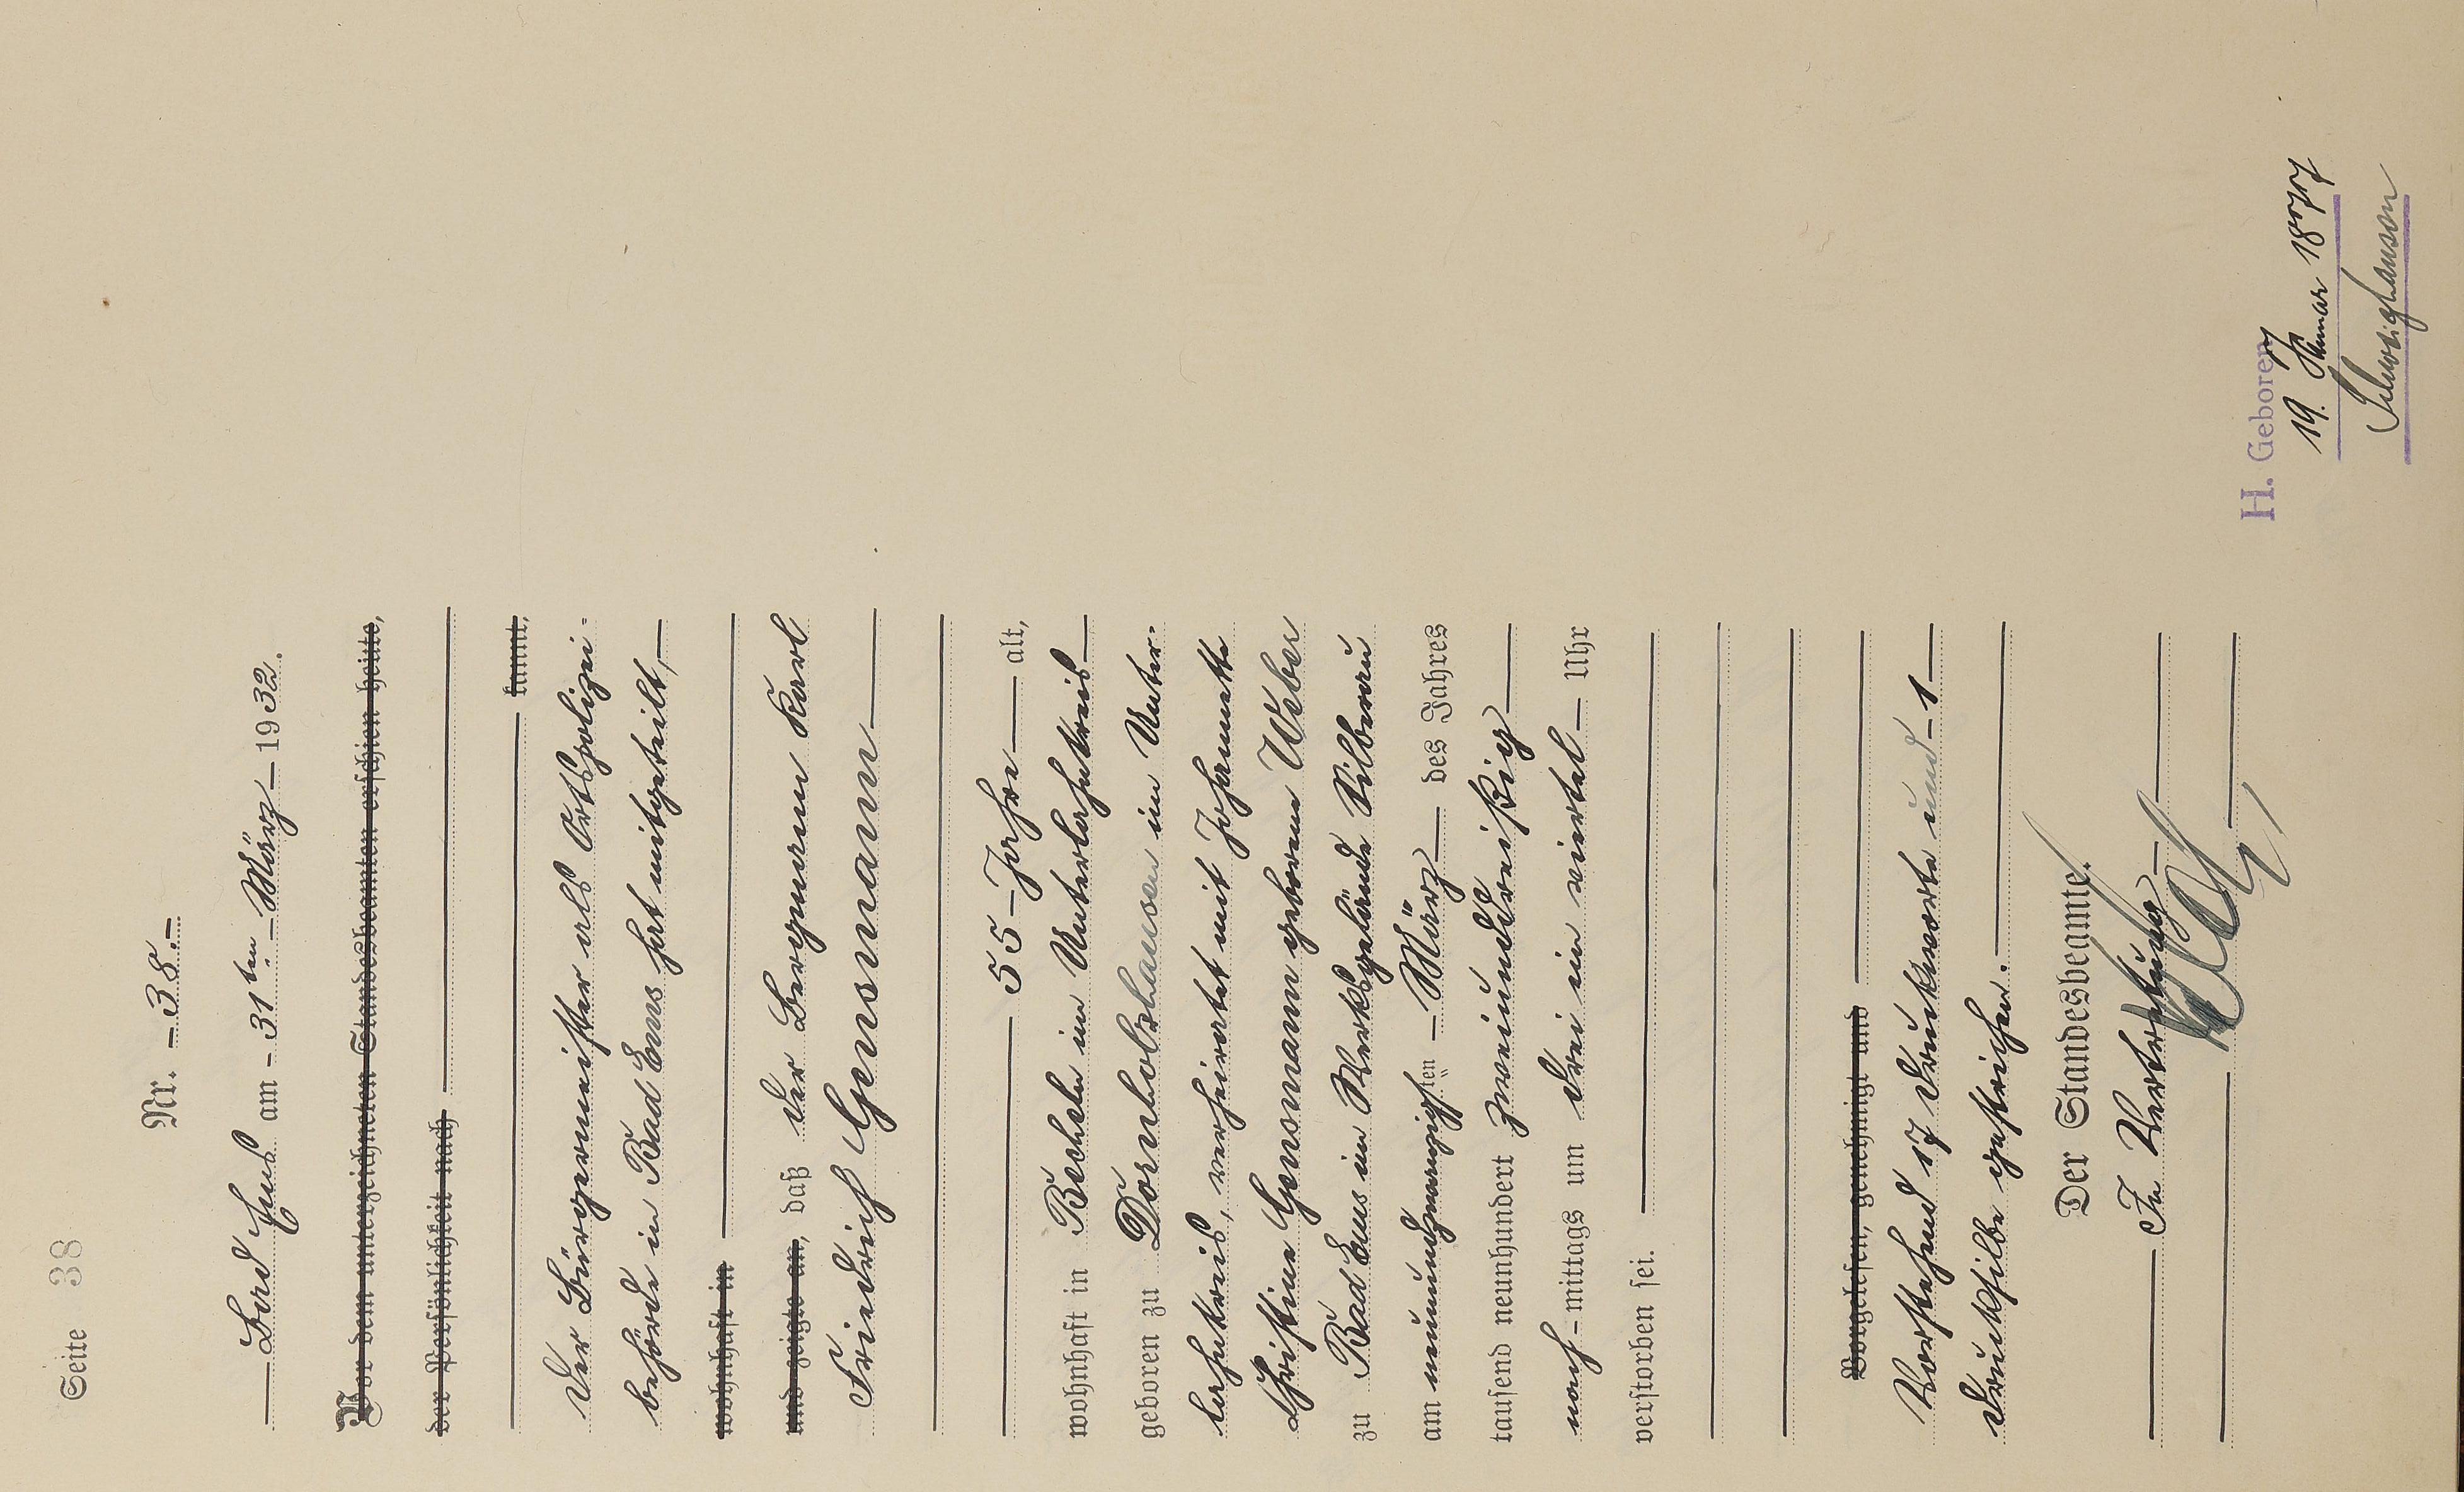 Seite 38
Nr. - 38.-
Bad Ems am - 31ten - März - 1932.
Vor dem unterzeichneten Standesbeamten erschien heute,
der Persönlichkeit nach
kannt.
der Bürgermeister als Ortspolizei-
behörde in Bad Ems hat mitgeteilt,
wohnhaft in
und zeigte an, daß der Bergmann Karl
Friedrich Gensmann
55 - Jahre alt,
wohnhaft in Becheln im Unterlahnkreis
geboren zu Dornholzhausen im Unter-
lahnkreis, verheiratet mit Johannette
Christine Gensmann geborene Weber
zu Bad Ems im Werksgelände Silberau
am neunundzwanzigsten - März des Jahres
tausend neunhundert zweiunddreißig
nach - mittags um drei ein viertel Uhr
verstorben sei.
Vorgelesen, genehmigt und
Vorstehend 17 Druckworte und - 1
Drucksilbe gestrichen.
Der Standesbeamte.
In Vertretung
H. Geboren
19. Januar 1877